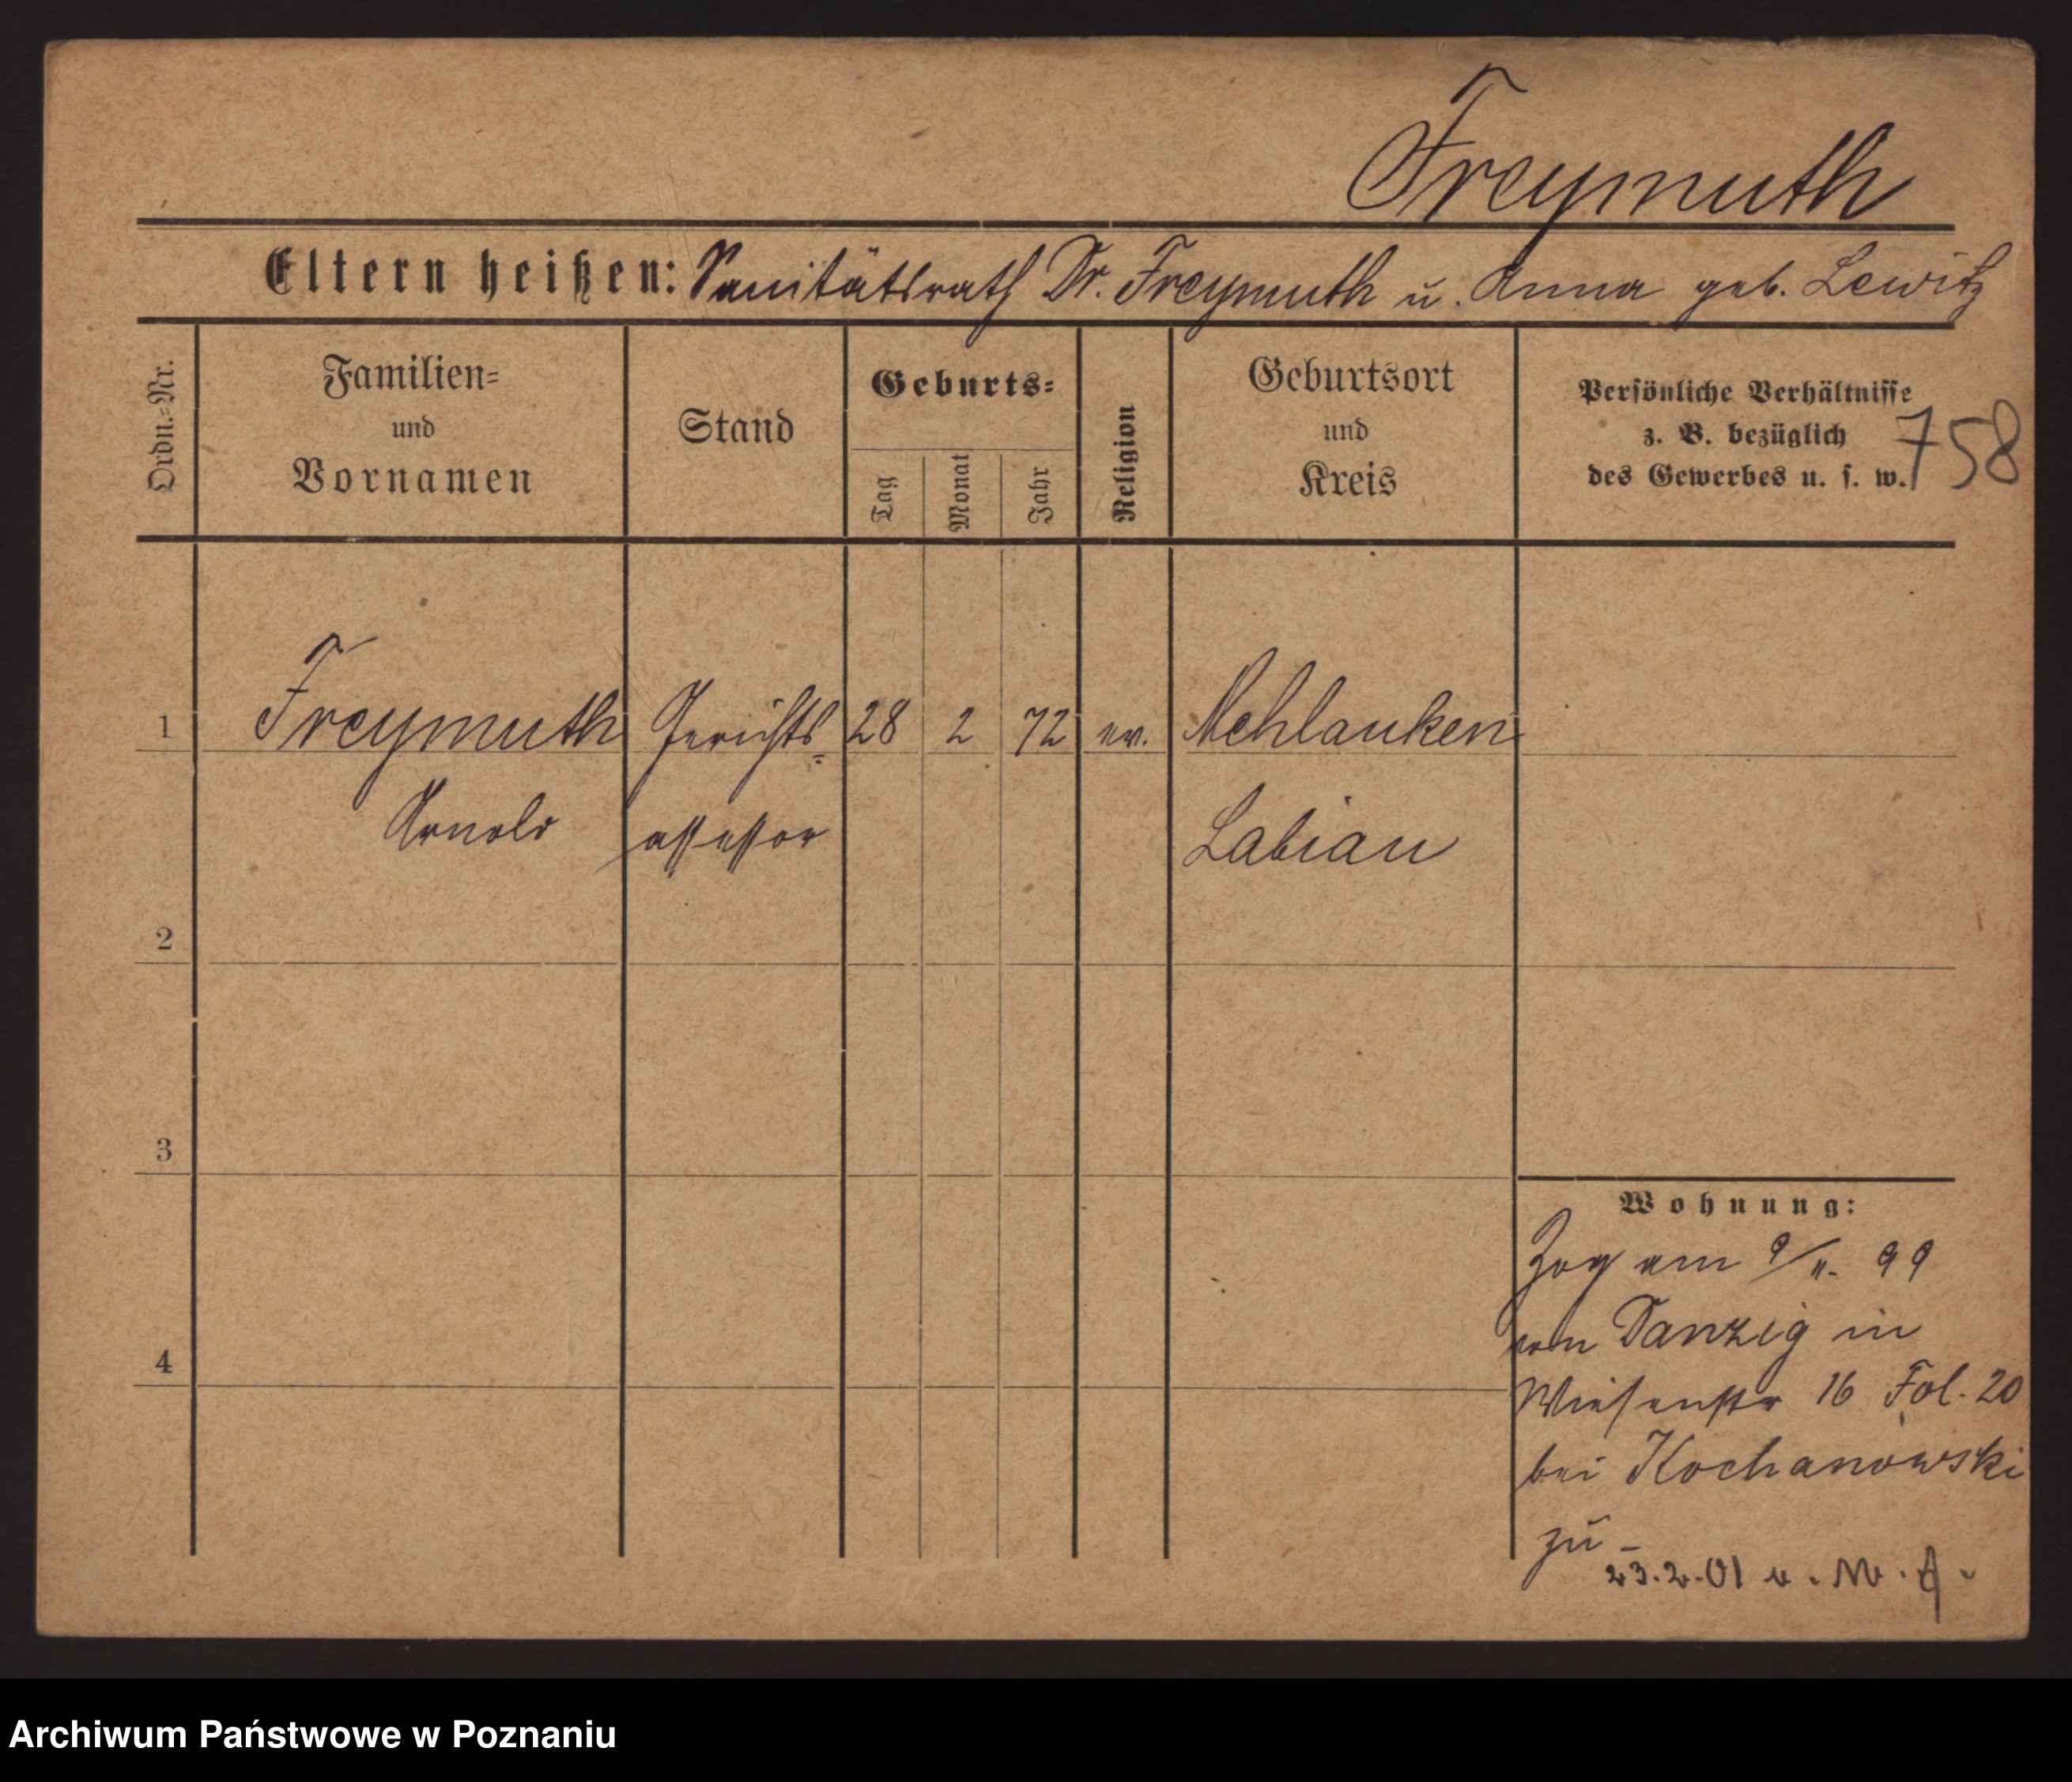 Freymuth
Eltern heißen: Sanitätsrath Dr. Freymuth u. Anna geb. Lewitz
Ordn.-Nr.
Familien-
und
Vornamen
Stand
Geburts-
Tag
Monat
Jahr
Religion
Geburtsort
und
Kreis
Persönliche Verhältnisse
z. B. bezüglich
des Gewerbes u. s. w.
758
1 Freymuth Gerichts- 28 2 72 ev. Mehlauken
Arnold assessor Labiau
2
3
4
Wohnung:
Zog am 9/11. 99
von Danzig in
Wiesenstr 16 Fol. 20
bei Kochanowski
zu -
23.2.01 v. M. A.
Archiwum Państwowe w Poznaniu